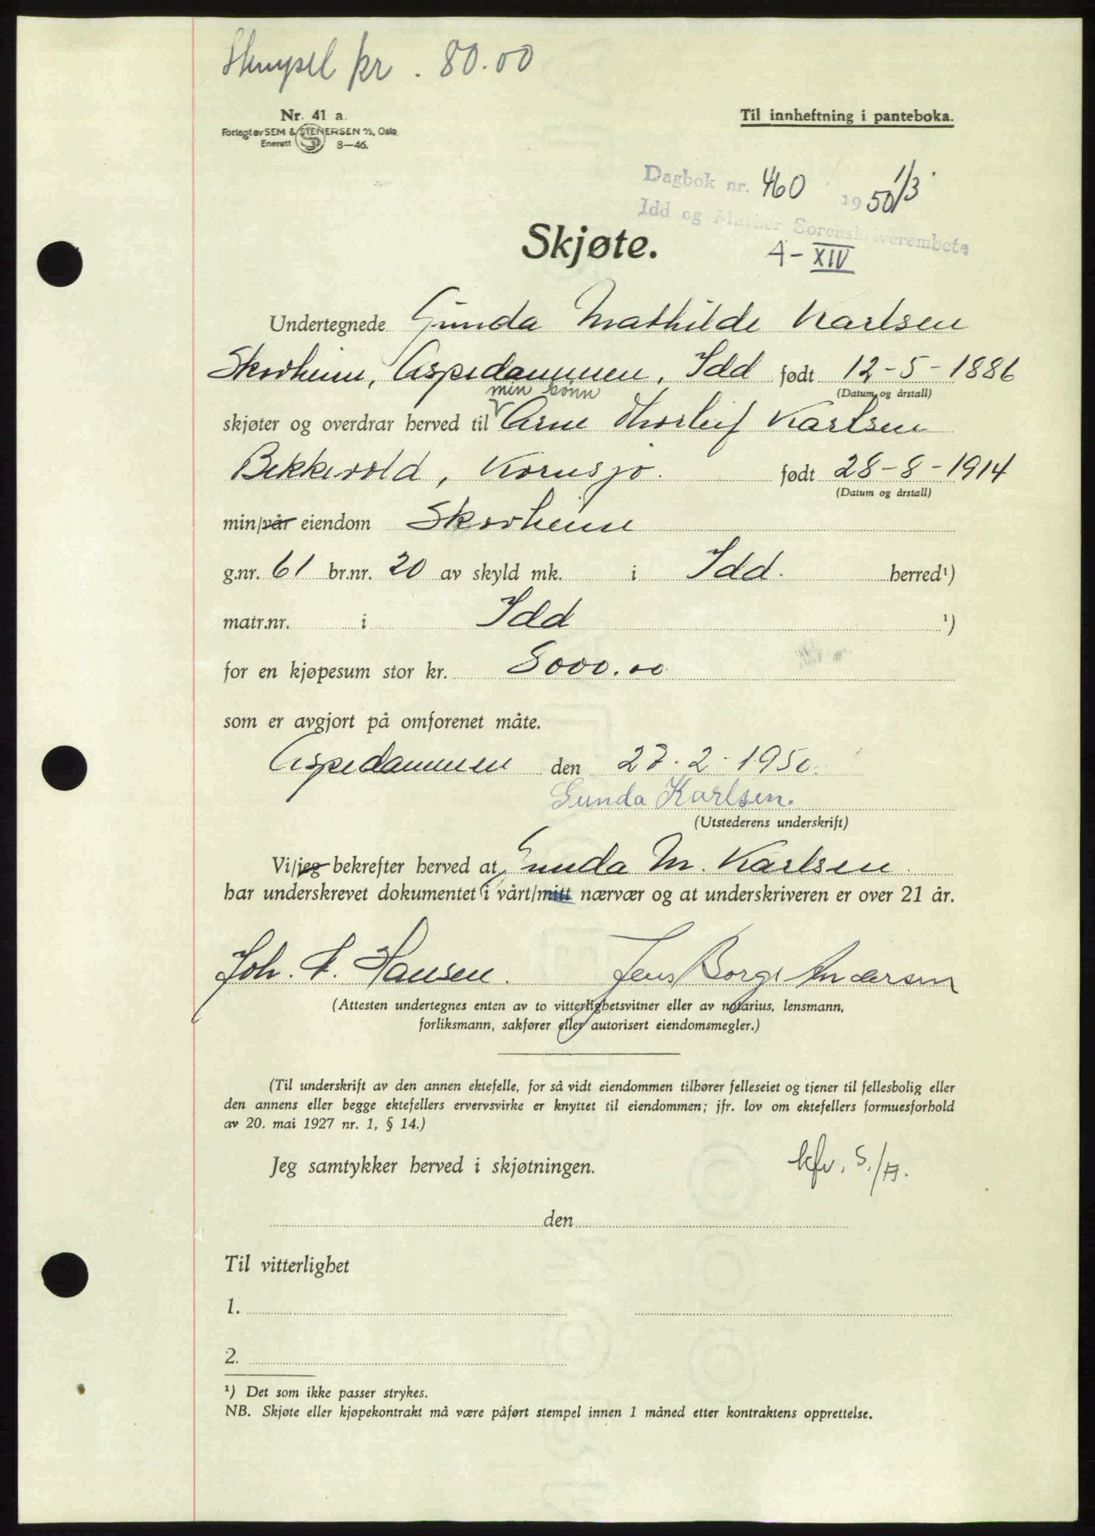 Stempel kr. 80.00
Nr. 41 a.
Forlagt av SEM & STENERSEN A/S, Oslo
Enerett 8—46.
Til innheftning i panteboka.
Dagbok nr. 460 1950 1/3
Idd og Marker Sorenskriverembete
A - XIV
Skjøte.
Undertegnede Gunda Mathilde Karlsen
Skovheim, Aspedammen, Idd født 12-5-1886
(Datum og årstall)
min sønn
skjøter og overdrar herved til Arne Thorleif Karlsen
Bekkevold, Kornsjø. født 28-8-1914
(Datum og årstall)
min/vår eiendom Skovheim
g.nr. 61 br.nr. 20 av skyld mk. i Idd. herred¹)
matr.nr. i Idd ¹)
for en kjøpesum stor kr. 8000.00
som er avgjort på omforenet måte.
Aspedammen den 27.2.1950.
Gunda Karlsen.
(Utstederens underskrift)
Vi/jeg bekrefter herved at Gunda M. Karlsen.
har underskrevet dokumentet i vårt/mitt nærvær og at underskriveren er over 21 år.
Joh. F. Hansen. Jens Borge Andersen
(Attesten undertegnes enten av to vitterlighetsvitner eller av notarius, lensmann,
forliksmann, sakfører eller autorisert eiendomsmegler.)
(Til underskrift av den annen ektefelle, for så vidt eiendommen tilhører felleseiet og tjener til fellesbolig eller
den annens eller begge ektefellers ervervsvirke er knyttet til eiendommen; jfr. lov om ektefellers formuesforhold
av 20. mai 1927 nr. 1, § 14.)
Jeg samtykker herved i skjøtningen.
kfv. S./A.
den
Til vitterlighet
1.
2.
¹) Det som ikke passer strykes.
NB. Skjøte eller kjøpekontrakt må være påført stempel innen 1 måned etter kontraktens opprettelse.